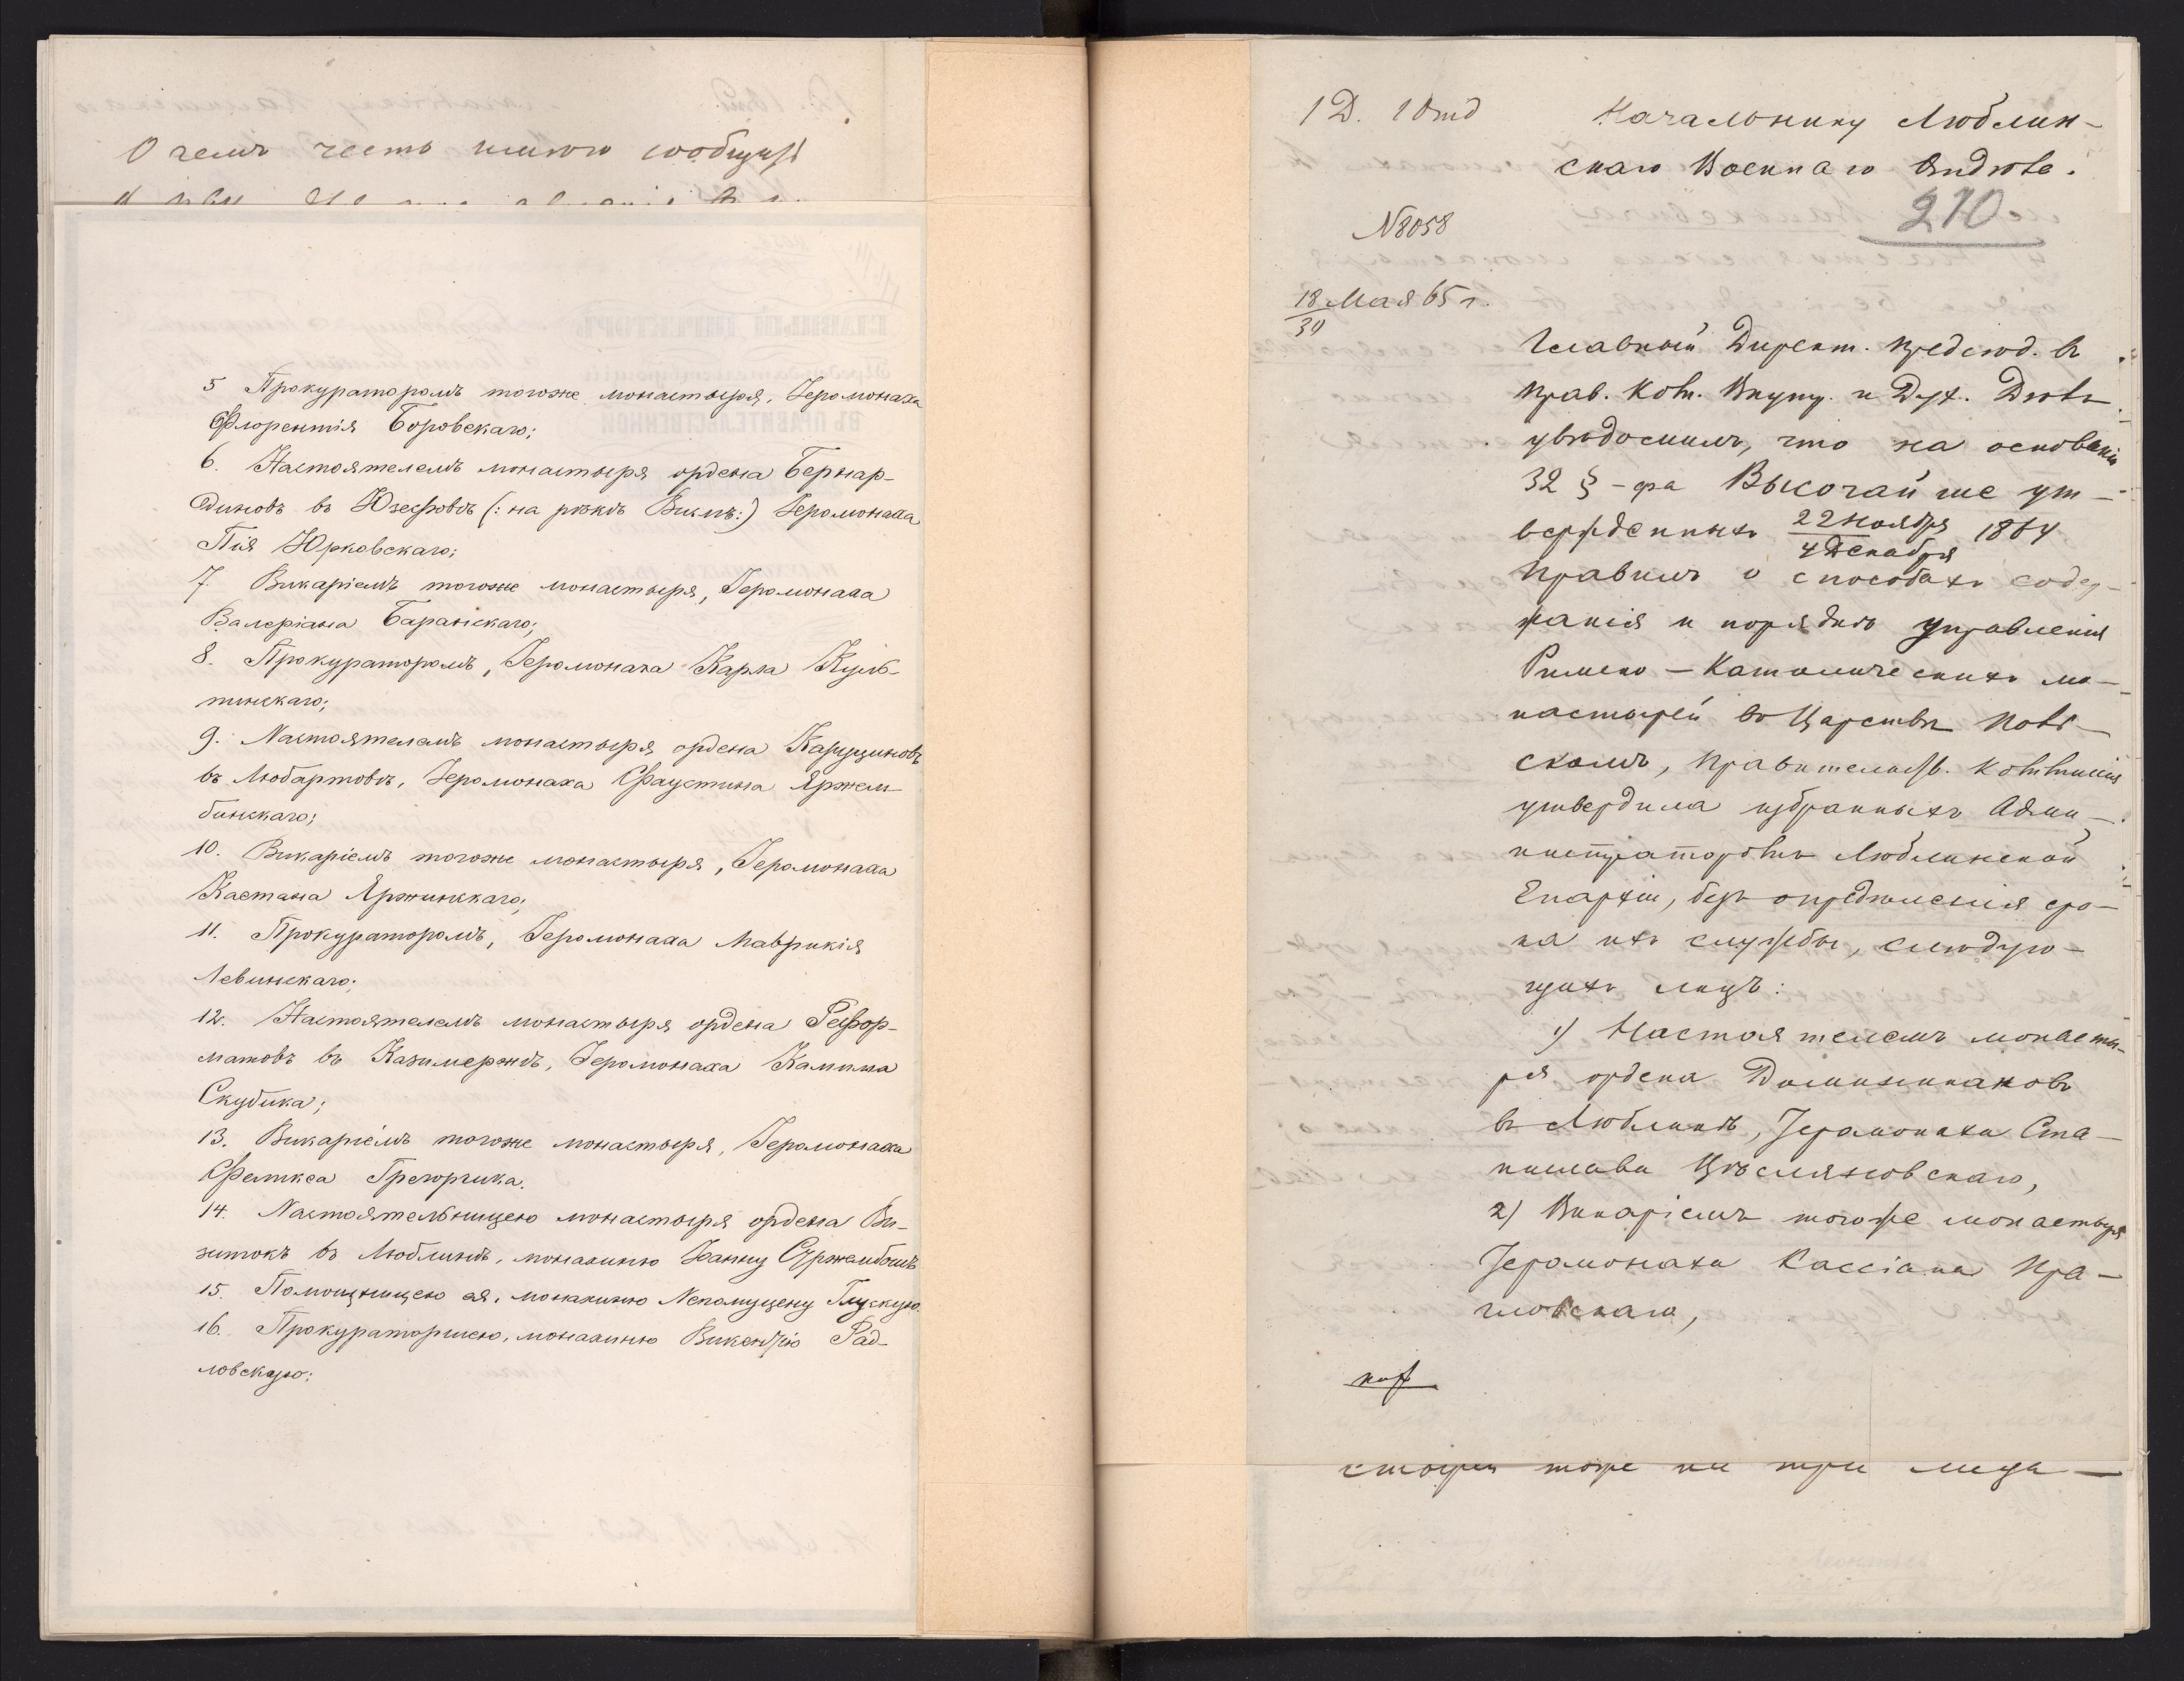 О чемъ честь имѣю сообщить
5 Прокураторомъ тогоже монастыря, Іеромонаха
Флорентія Боровскаго;
6. Настоятелемъ монастыря ордена Бернар-
диновъ въ Юзефовѣ (: на рѣкѣ Вислѣ:) Іеромонаха
Пія Юрковскаго;
7 Викаріемъ тогоже монастыря, Іеромонаха
Валеріана Баранскаго;
8. Прокураторомъ, Іеромонаха Карла Куль-
пинскаго;
9. Настоятелемъ монастыря ордена Капуциновъ
въ Любартовѣ, Іеромонаха Фаустина Яржем-
бинскаго;
10. Викаріемъ тогоже монастыря, Іеромонаха
Каетана Яржинскаго;
11. Прокураторомъ, Іеромонаха Маврикія
Левинскаго;
12. Настоятелемъ монастыря ордена Рефор-
матовъ въ Казимержѣ, Іеромонаха Камила
Скубика;
13. Викаріемъ тогоже монастыря, Іеромонаха
Феликса Грегорчика.
14. Настоятельницею монастыря ордена Ви-
зитокъ въ Люблинѣ, монахиню Іоанну
15. Помощницею ея, монахиню Непомуцену Глускую
16. Прокураторшею, монахиню Викентію Рад-
ловскую;
1 Д. 1 Отд
Начальнику Люблин-
скаго Военнаго Отдѣла.
270
N 8058
18/30 Мая 65 г.
Главный Директ. предсѣд. въ
Прав. Ком. Внутр. и Дух. Дѣлъ
увѣдомилъ, что на основаніи
32 § -фа Высочайше ут-
вержденныхъ 22 Ноября / 4 Декабря 1864
Правилъ о способахъ содер-
жанія и порядкѣ управленія
Римско-Католическихъ мо-
настырей въ Царствѣ Поль-
скомъ, Правительств. Коммисія
утвердила избранныхъ Адми-
нистраторомъ Люблинской
Епархіи, безъ опредѣленія сро-
ка ихъ службы, слѣдую-
щихъ лицъ:
1) Настоятелемъ монасты-
ря ордена Доминикановъ
въ Люблинѣ, Іеромонаха Ста-
нислава Цѣсляковскаго,
2) Викаріемъ тогоже монастыря
Іеромонаха Кассіана Пра-
гловскаго,
тоже на три лица